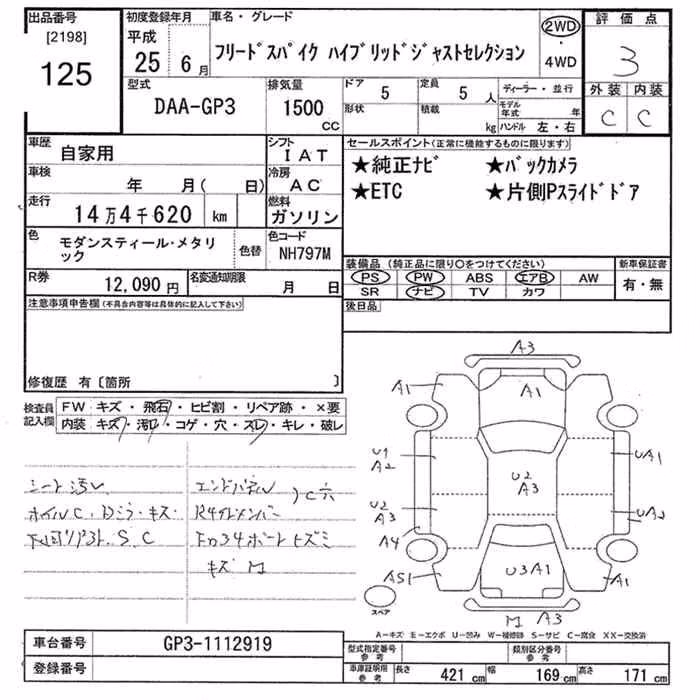 出品番号 初度登録年月 車名・グレード 評価点
[2198] 125
平成 25 6月
フリードスパイク ハイブリッドジャストセレクション
2WD ・ 4WD
3
型式 排気量 ドア 定員 ディーラー・並行 外装 内装
DAA-GP3 1500 CC 5 5人
形状 積載 kg モデル年式 年
ハンドル 左・右
C C
車歴 自家用 シフト IAT
セールスポイント(正常に機能するものに限ります)
車検 年 月( 日) 冷房 AC
★純正ナビ ★バックカメラ
★ETC ★片側Pスライドドア
走行 14万4千620 km 燃料 ガソリン
色 モダンスティール・メタリック 色替 色コード NH797M
装備品(純正品に限り○をつけてください) 新車保証書
PS PW ABS エアB AW 有・無
SR ナビ TV カワ
R券 12,090円 名変通知期限 月 日
後日品
注意事項申告欄(不具合内容等は具体的に記入して下さい)
修復歴 有〔箇所 〕
検査員記入欄
FW キズ・飛石・ヒビ割・リペア跡・×要
内装 キズ・汚れ・コゲ・穴・スレ・キレ・破レ
シート汚レ
ホイルC、Dミラーキズ・
S.C
キズ M
A3
A1 A1
U1 A2
UA1
U2 A3
U2 A3
UA2
A4
AS1 U3A1 A1
スペア
M A3
A-キズ E-エクボ U-凹み W-補修跡 S-サビ C-腐食 XX-交換済
車台番号 GP3-1112919
登録番号
型式指定番号 参考 類別区分番号 参考
車庫証明用 参考 長さ 421cm 幅 169cm 高さ 171cm